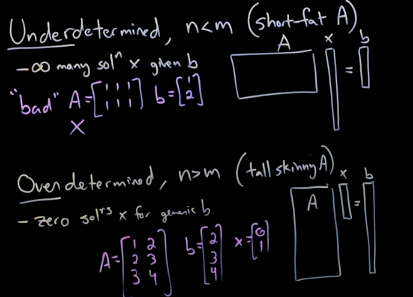 Underdetermined, n<m (short-fat A)
A x b
=
- ∞ many solⁿ x given b
"bad" A=[1 1 1 1
1 1 1 1] b=[1
2]
X
Overdetermined, n>m (tall skinny A)
A x b
=
- zero solⁿs x for generic b
A=[1 2
2 3
3 4] b=[2
3
4] x=[0
1]